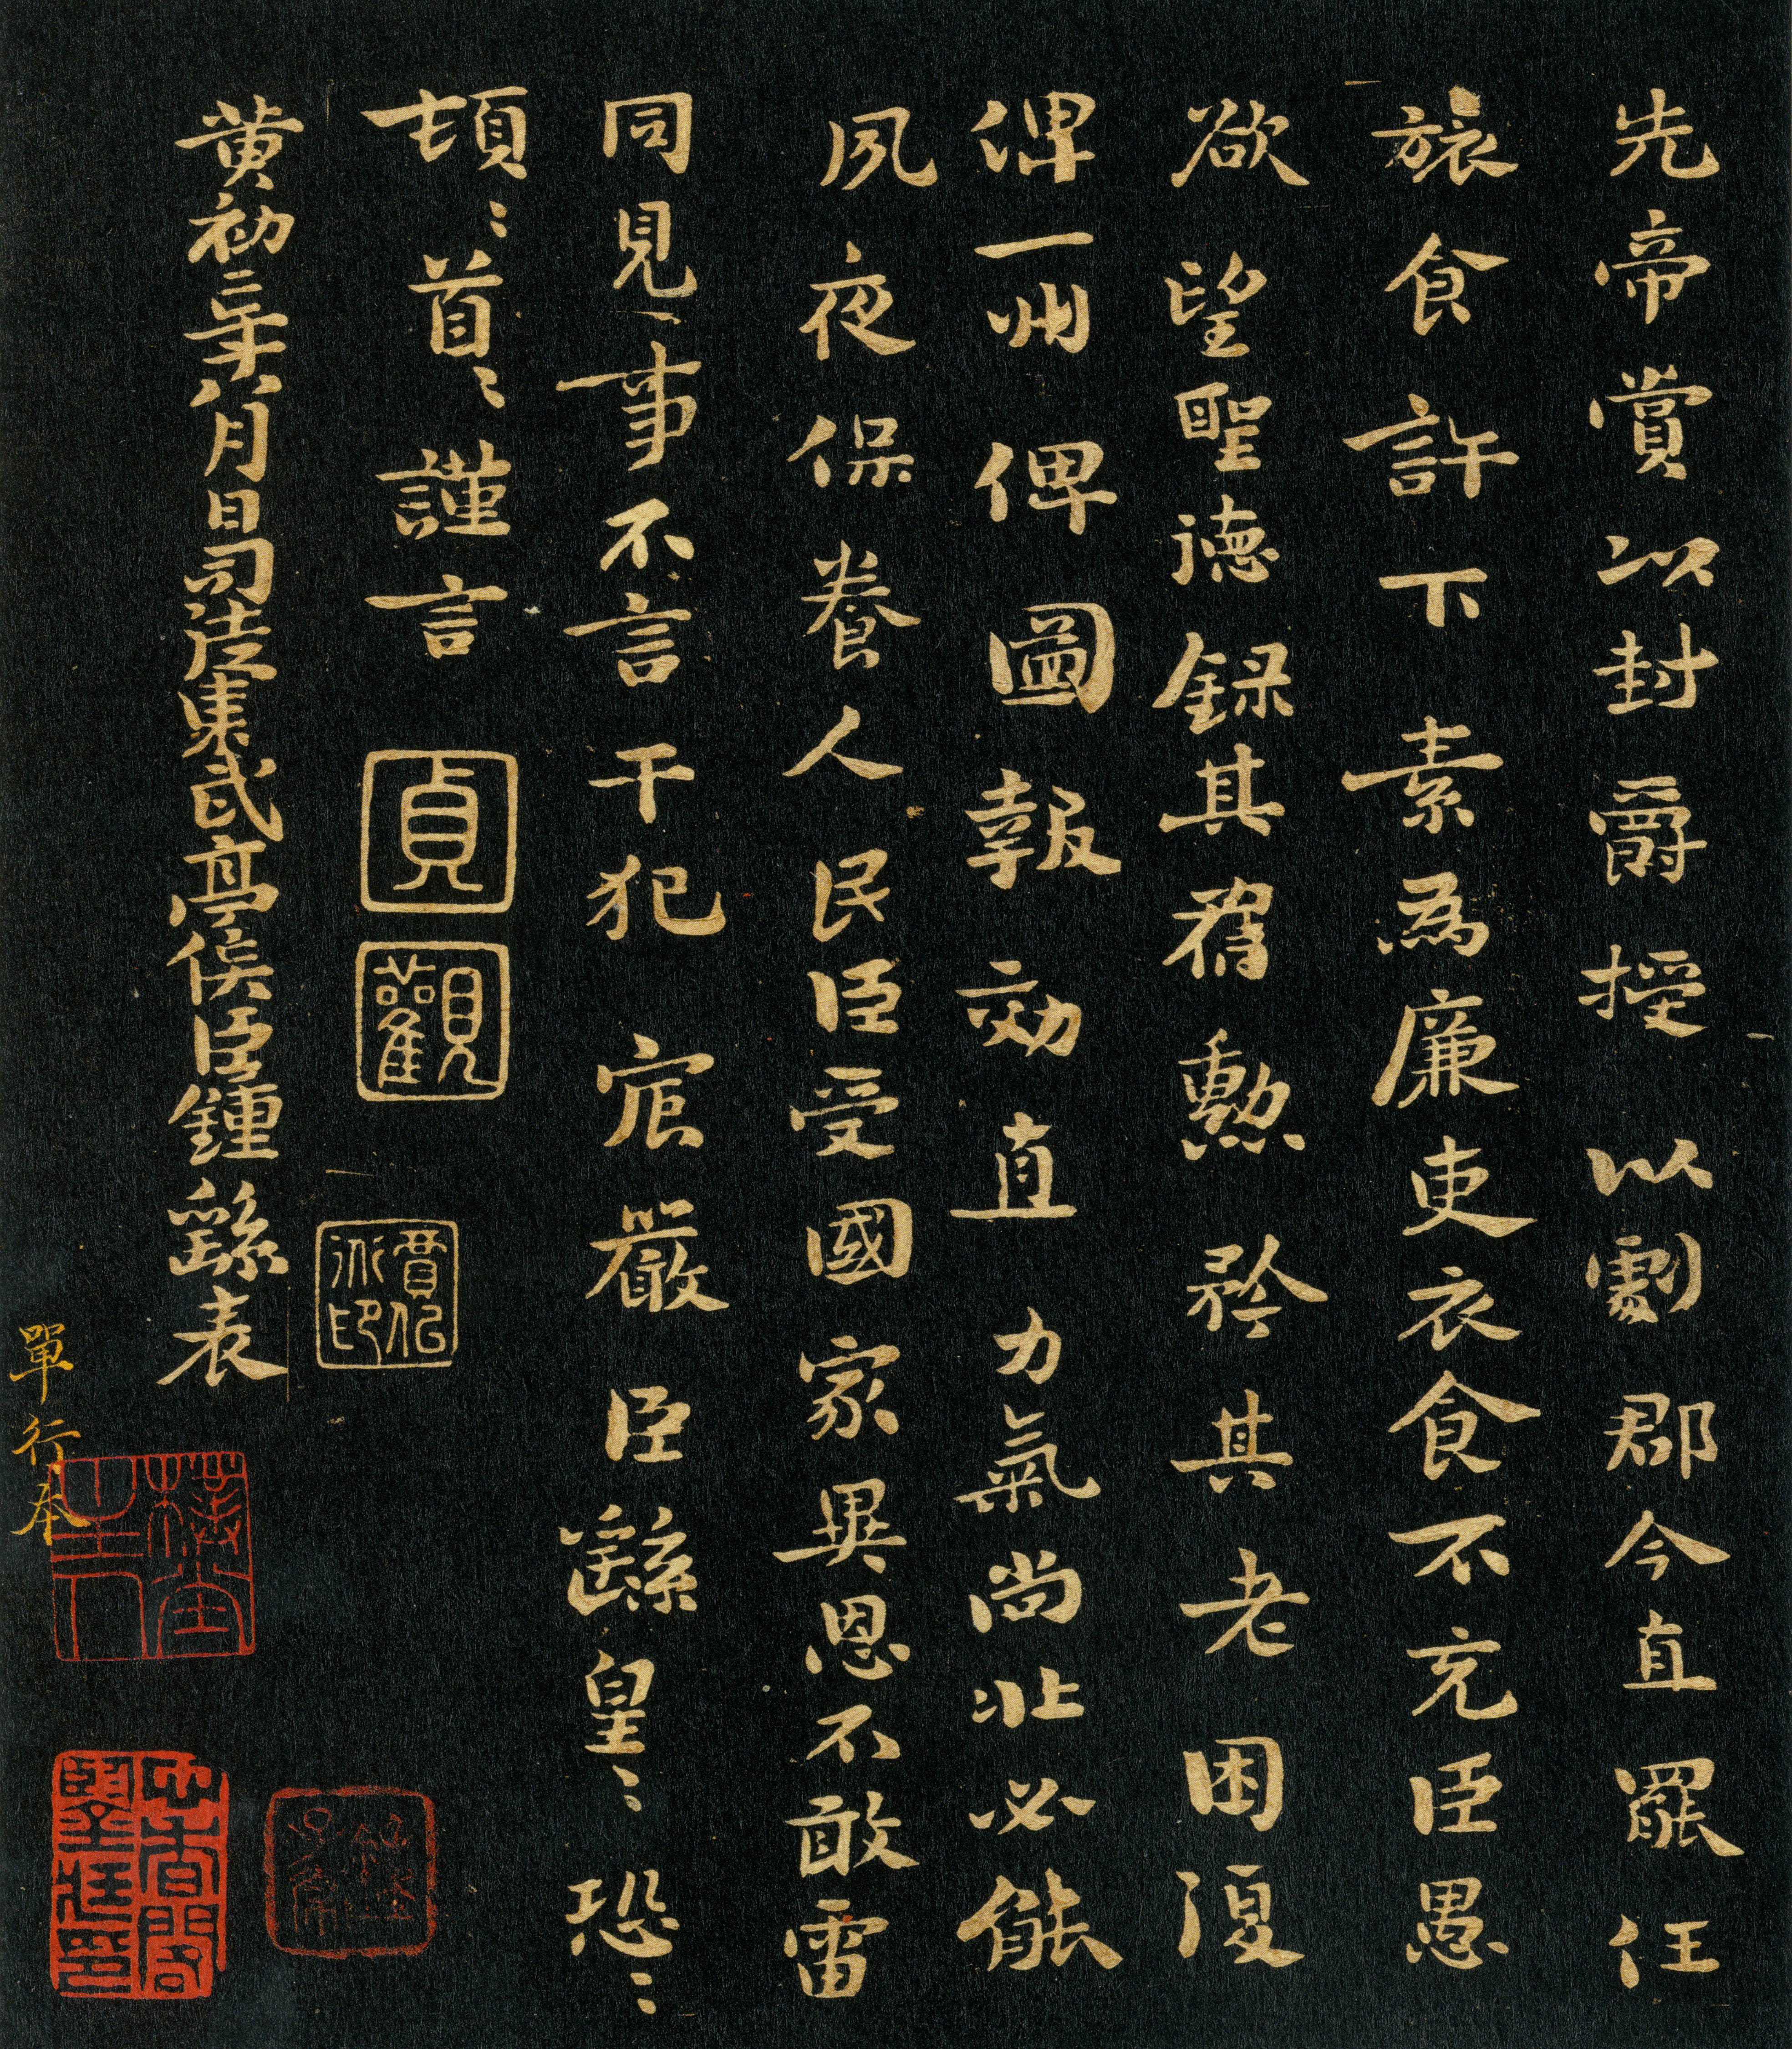 先帝賞以封爵授以劇郡今直罷任
旅食許下素爲廉吏衣食不充臣愚
欲望聖德録其舊勳矜其老困復
俾一州俾圖報効直力氣尚壯必能
夙夜保養人民臣受國家異恩不敢雷
同見事不言干犯宸嚴臣繇皇〻恐〻
頓〻首〻謹言
貞
觀
黄初二年八月日司徒東武亭侯臣鍾繇表
單行本